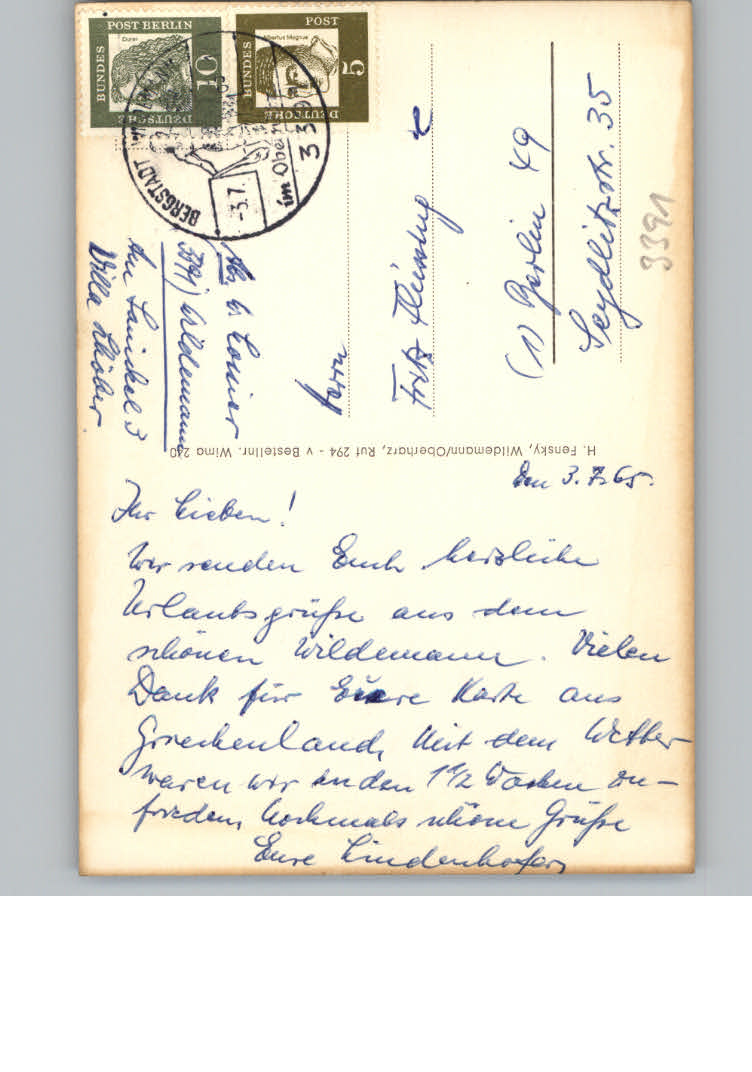 POST BERLIN
BUNDES
DEUTSCHE
Dürer
10
POST
BUNDES
DEUTSCHE
Albertus Magnus
5
BERGSTADT
im Ober
339
-3.7.
Abs.
3391) Wildemann
Am 3
Villa
Herrn
Fritz
(1) Berlin 49
Seydlitzstr. 35
3391
H. Fensky, Wildemann/Oberharz, Ruf 294 - v Bestellnr. Wima 240
Den 3.7.65.
Ihr Lieben!
Wir senden Euch herzliche
Urlaubsgrüße aus dem
schönen Wildemann. Vielen
Dank für Eure Karte aus
Griechenland, Mit dem Wetter
waren wir in den 1 1/2 Wochen zu-
frieden, Nochmals schöne Grüße
Eure Lindenhofers